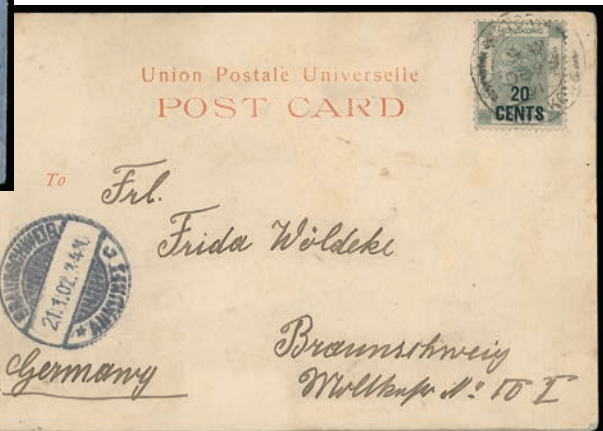 Union Postale Universelle
POST CARD
HONGKONG
20
CENTS
To
Frl.
Frida Wöldeke
BRAUNSCHWEIG
21.1.02.
ANKUNFT
Braunschweig
Germany